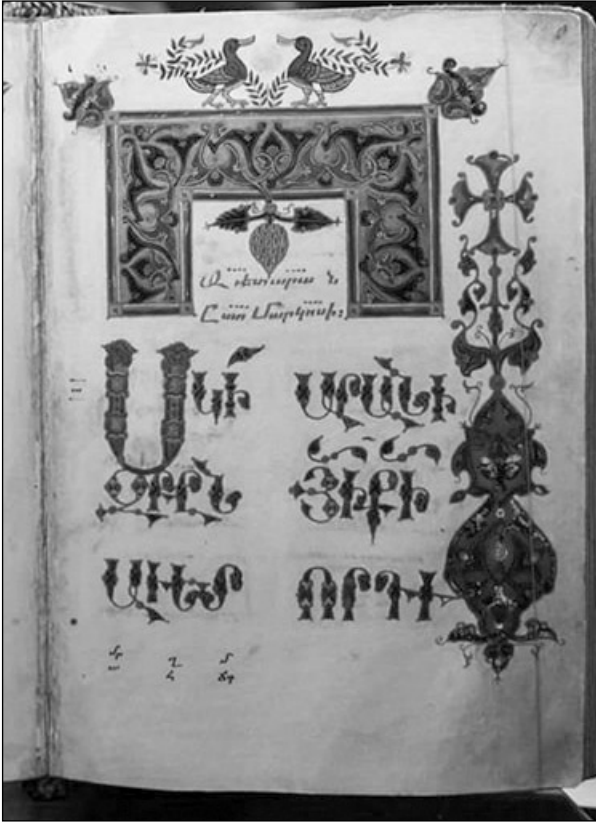 Աւետարան
Ըստ Մարկոսի։
Սկի
զբն
աւետ
արանի
ՅիՔի
որդւ